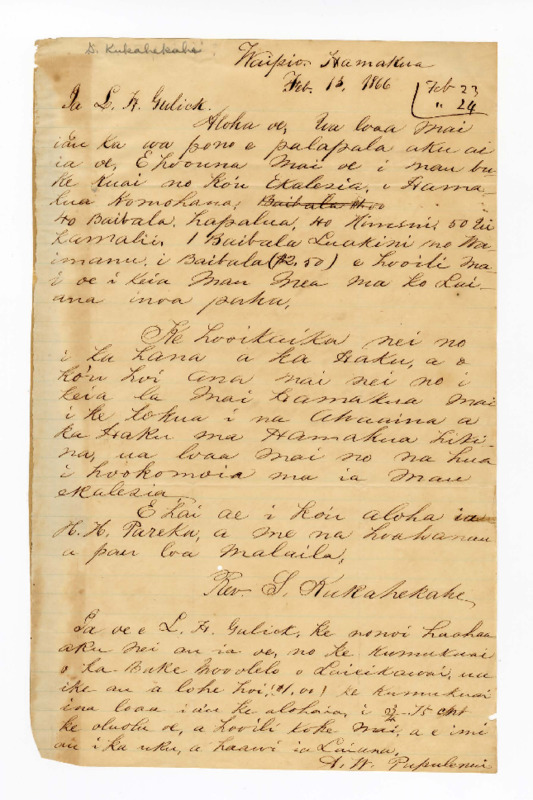 S. Kukahekahe
Waipio. Hamakua
Feb. 13, 1866
Feb 23
" 24
Ia L. H. Gulick.
Aloha oe, Ua loaa mai
iau ka wa pono e palapala aku ai
ia oe, E hoouna mai oe i mau bu
ke kuai no ko'u Ekalesia, o Hama-
kua Komohana, Baibala 4.00
40 Baibala. hapalua, 40 Himeni, 50 Lii
kamalii, 1 Baibala Luakini no Wa
imanu, i Baibala ($2.50) e hooili ma
i oe i keia mau mea ma ko Lui-
ana inoa paha,
Ke hooikaika nei no
i ka hana a ka Haku, a o
ko'u hoi ana mai nei no i
keia la mai Hamakua mai
i ke kokua i na Ahaaina a
ka Haku ma Hamakua hiki-
na, ua loaa mai no na hua
i hookomoia ma ia mau
ekalesia
E hai ae i ko'u aloha ia
H. H. Pareka, a me na hoahanau
a pau loa malaila,
Rev. S. Kukahekahe
Ia oe e L. H. Gulick, ke nonoi haahaa
aku nei au ia oe, no ke kumukuai
o ka Buke Moolelo o Laieikawai, ua
ike au a lohe hoi, ($1,00) ke kumukuai
ina loaa iau ke alohaia, i 75 cnt
ke oluolu oe, a hooili koke mai, a e imi
au i ka uku, a haawi ia Luiana,